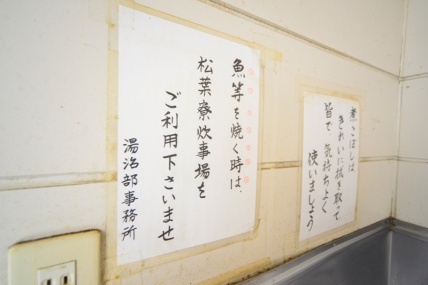 魚等を焼く時は、
松葉寮炊事場を
ご利用下さいませ
湯治部事務所
煮こぼしは
きれいに拭き取って
皆で、気持ちよく
使いましょう